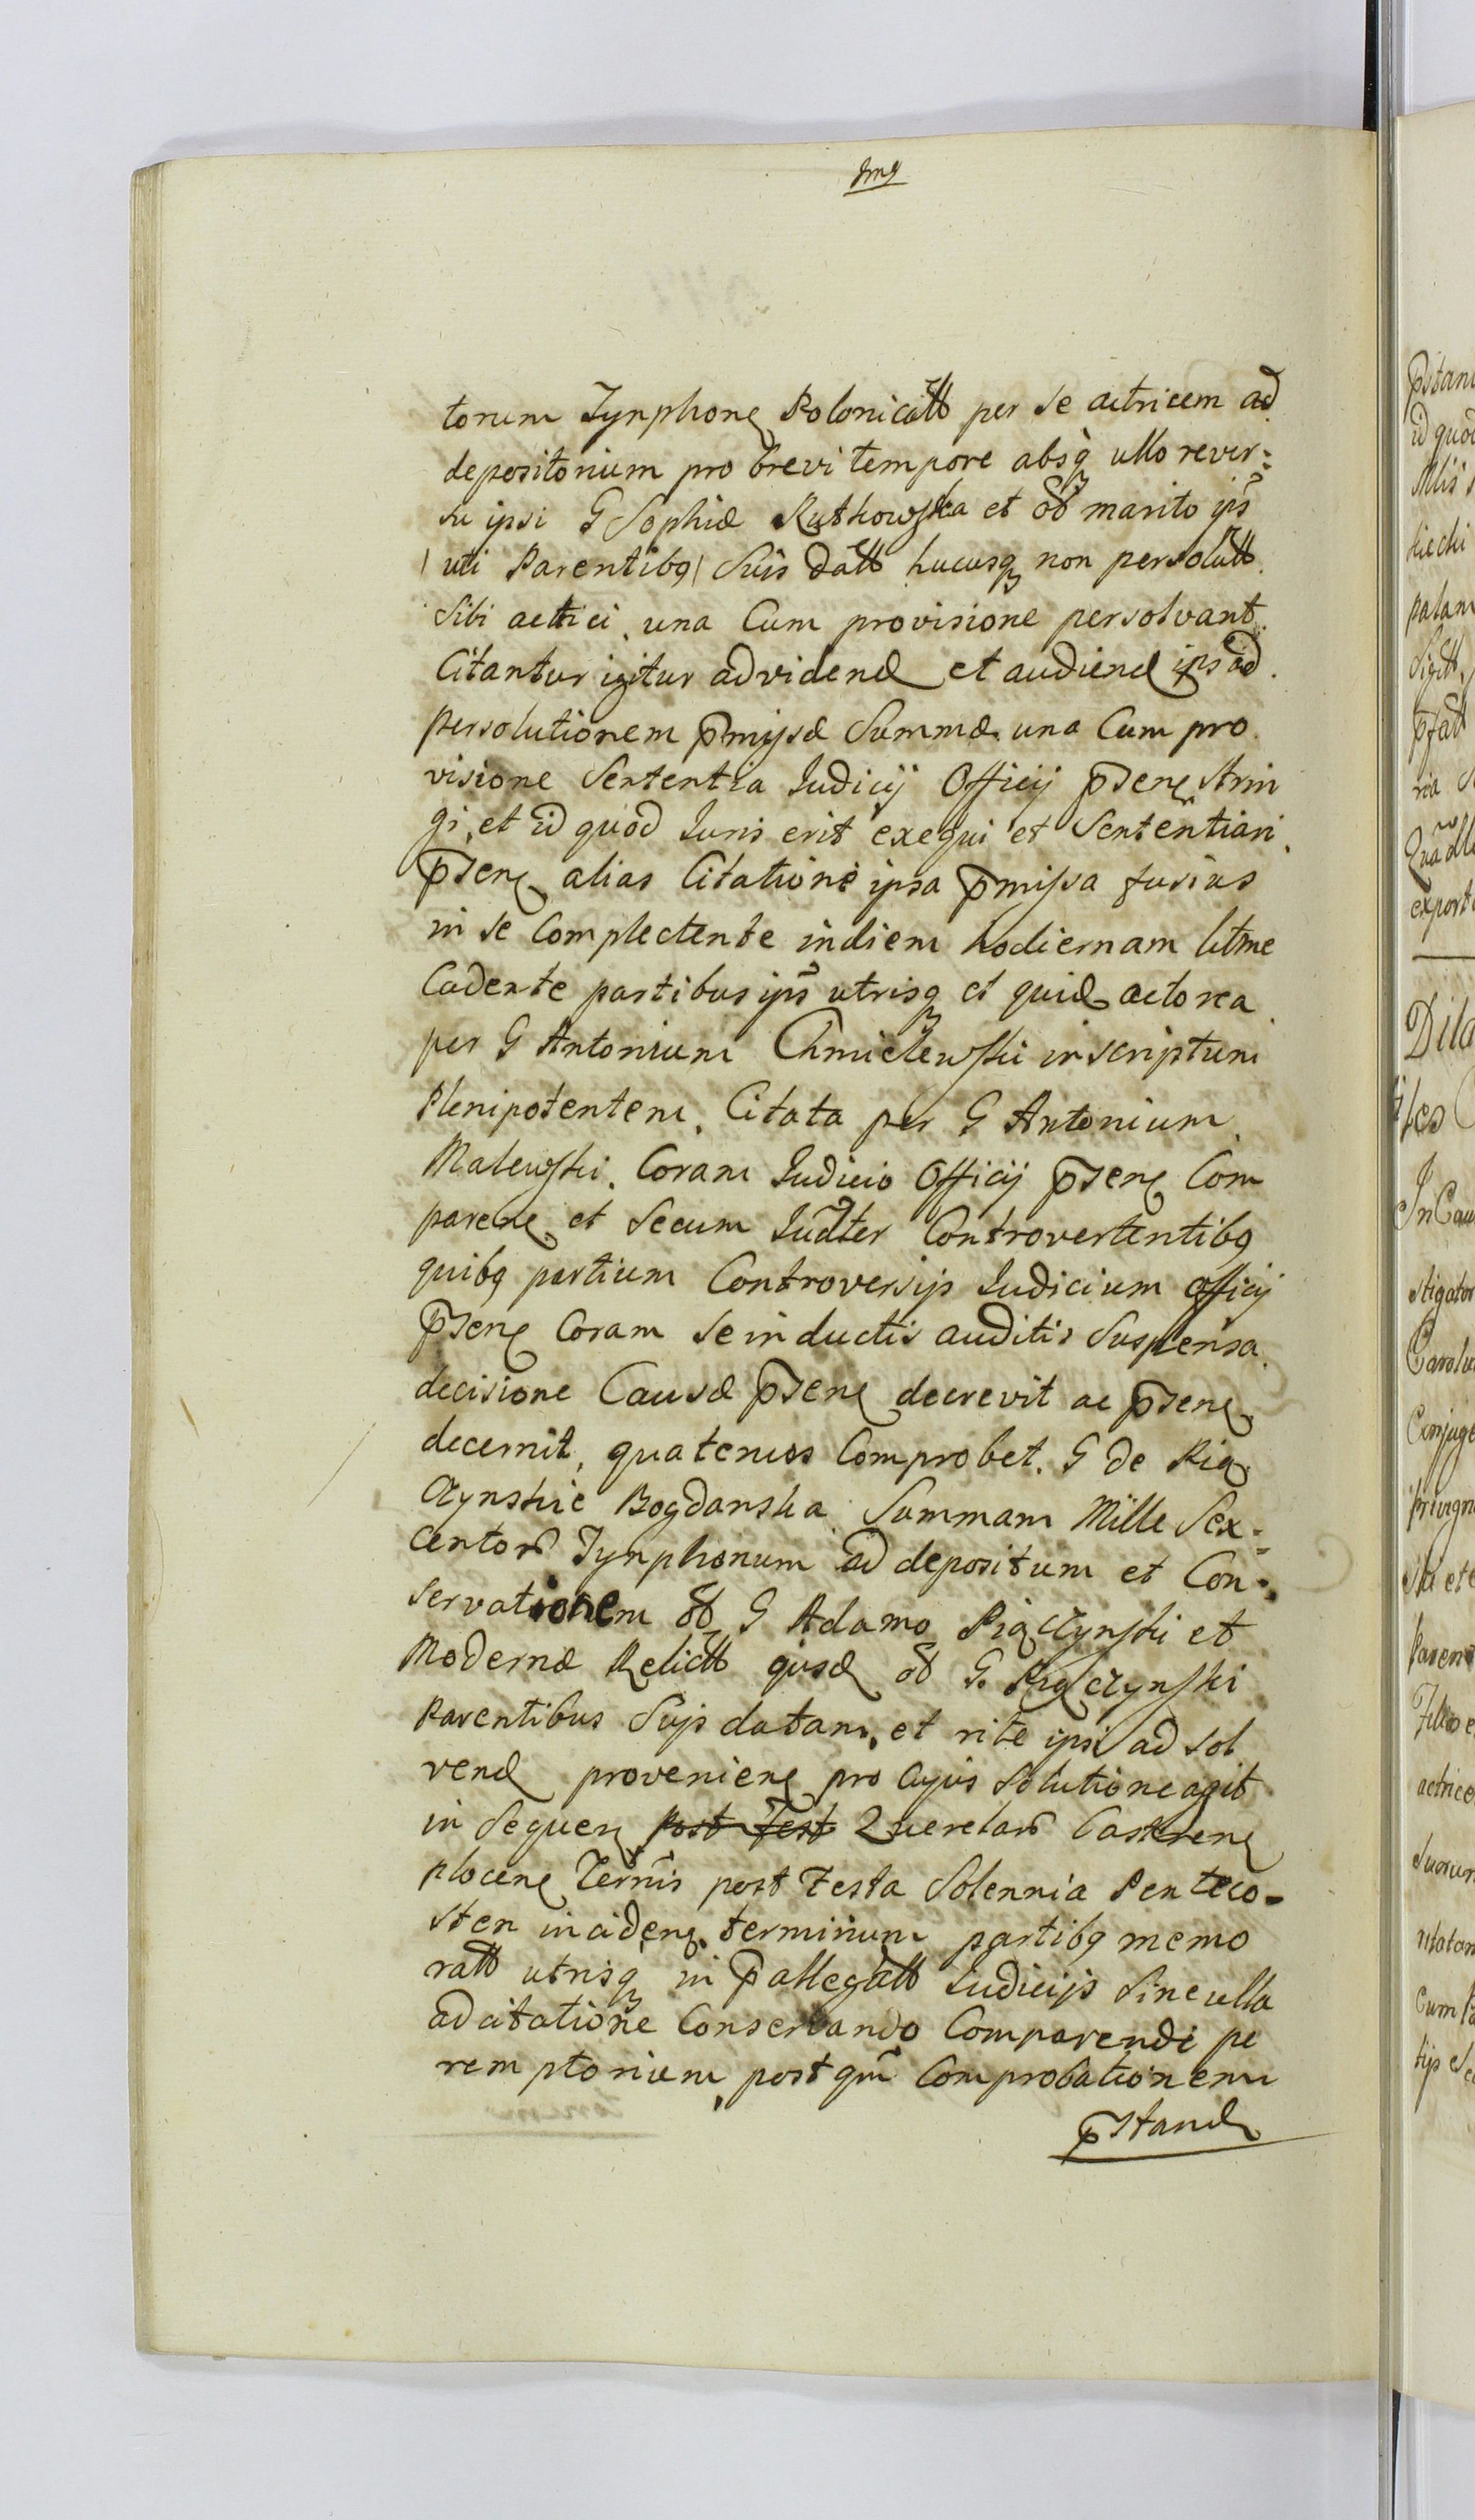 torum Tynphonę Polonicatt per se actricem ad
depositorium pro brevi tempore absq ullo rever=
su ipsi G Sophiæ Rutkowska et ob marito ips
(uti Parentibq) Suis datt hucusq non persolutt
Sibi actrici, una Cum provisione persolvant
Citantur igitur ad vidend et audiend ips ad
persolutionem pmissæ Summæ una Cum pro
visione Sententia Iudicij Officij psenę strin
gi, et id quod Iuris erit exequi et Sententiari
Psenę alias Citatione ipsa pmissa fusius
in se Complectente in diem hodiernam litme
Cadente partibus ips utrisq et quid actorea
per G Antonium Chmielewski inscriptum
Plenipotentem, Citata per G Antonium
Malewski. Coram Iudicio Officij psenę Com
parenę et Secum Iudter Controvertentibq
quibq partium Controversijs Iudicium officij
Psenę Coram se inductis auditis Suspensa
decisione Causæ psenę decrevit ac psenę
decernit, quatenus Comprobet. G de Pią
Czynskie Bogdanska Summam Mille Sex=
centor Tynphonum ad depositum et Con=
servationem ob G Adamo Piączynski et
Modernæ Relictt ejusd ob G. Piączynski
Parentibus Suis datam, et rite ipsi ad sol
vend provenienę pro Cujus Solutione agit
in Sequenę post Fest Querelar Castrenę
plocenę Termis post Festa Solennia Penteco=
sten incidenę terminum partibq memo
ratt utrisq in pallegatt Iudicijs Sine ulla
adcitatione Conservando Comparendi pe
remptorium, post qm Comprobationem
pstand